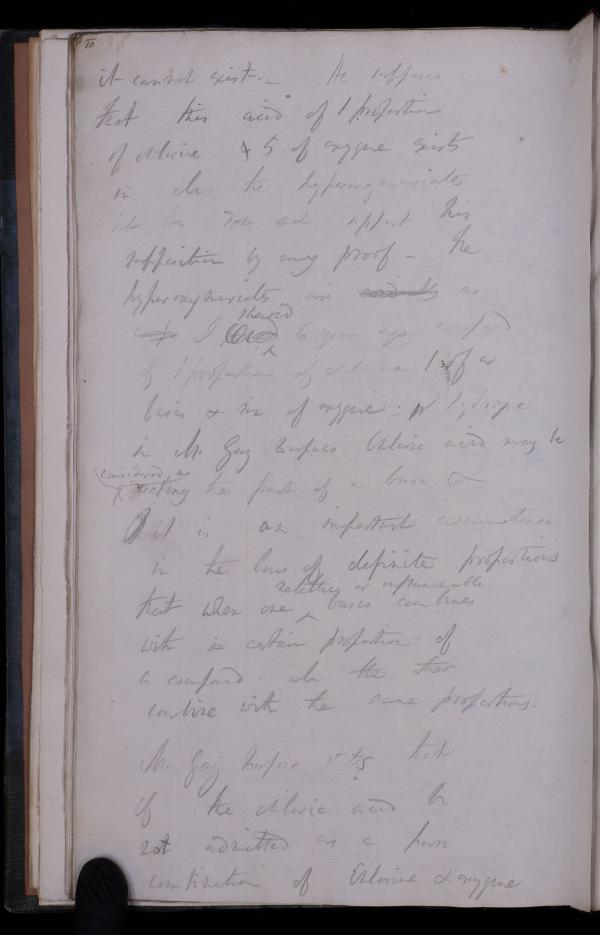 it cannot exist. — He supposes
that this acid of 1 proportion
of chlorine & 5 of oxygene exists
in all the hyperoxymuriates
but he does not support this
supposition by any proof. — The
hyperoxymuriates are as
I shewed 6 years ago composed
of 1 proportion of chlorine 1 of a
basis & six of oxygene: hydrogene
in M. Gay Lussacs Chloric acid may be
considered as acting the part of a base &
it is an important circumstance
in the law of definite proportions
that when one metallic or inflammable basis combines
with certain proportion of
a compound all the
combine with the same proportions.
M. Gay Lussac states that
if the chloric acid be
not admitted as a pure
combination of Chlorine & oxygene